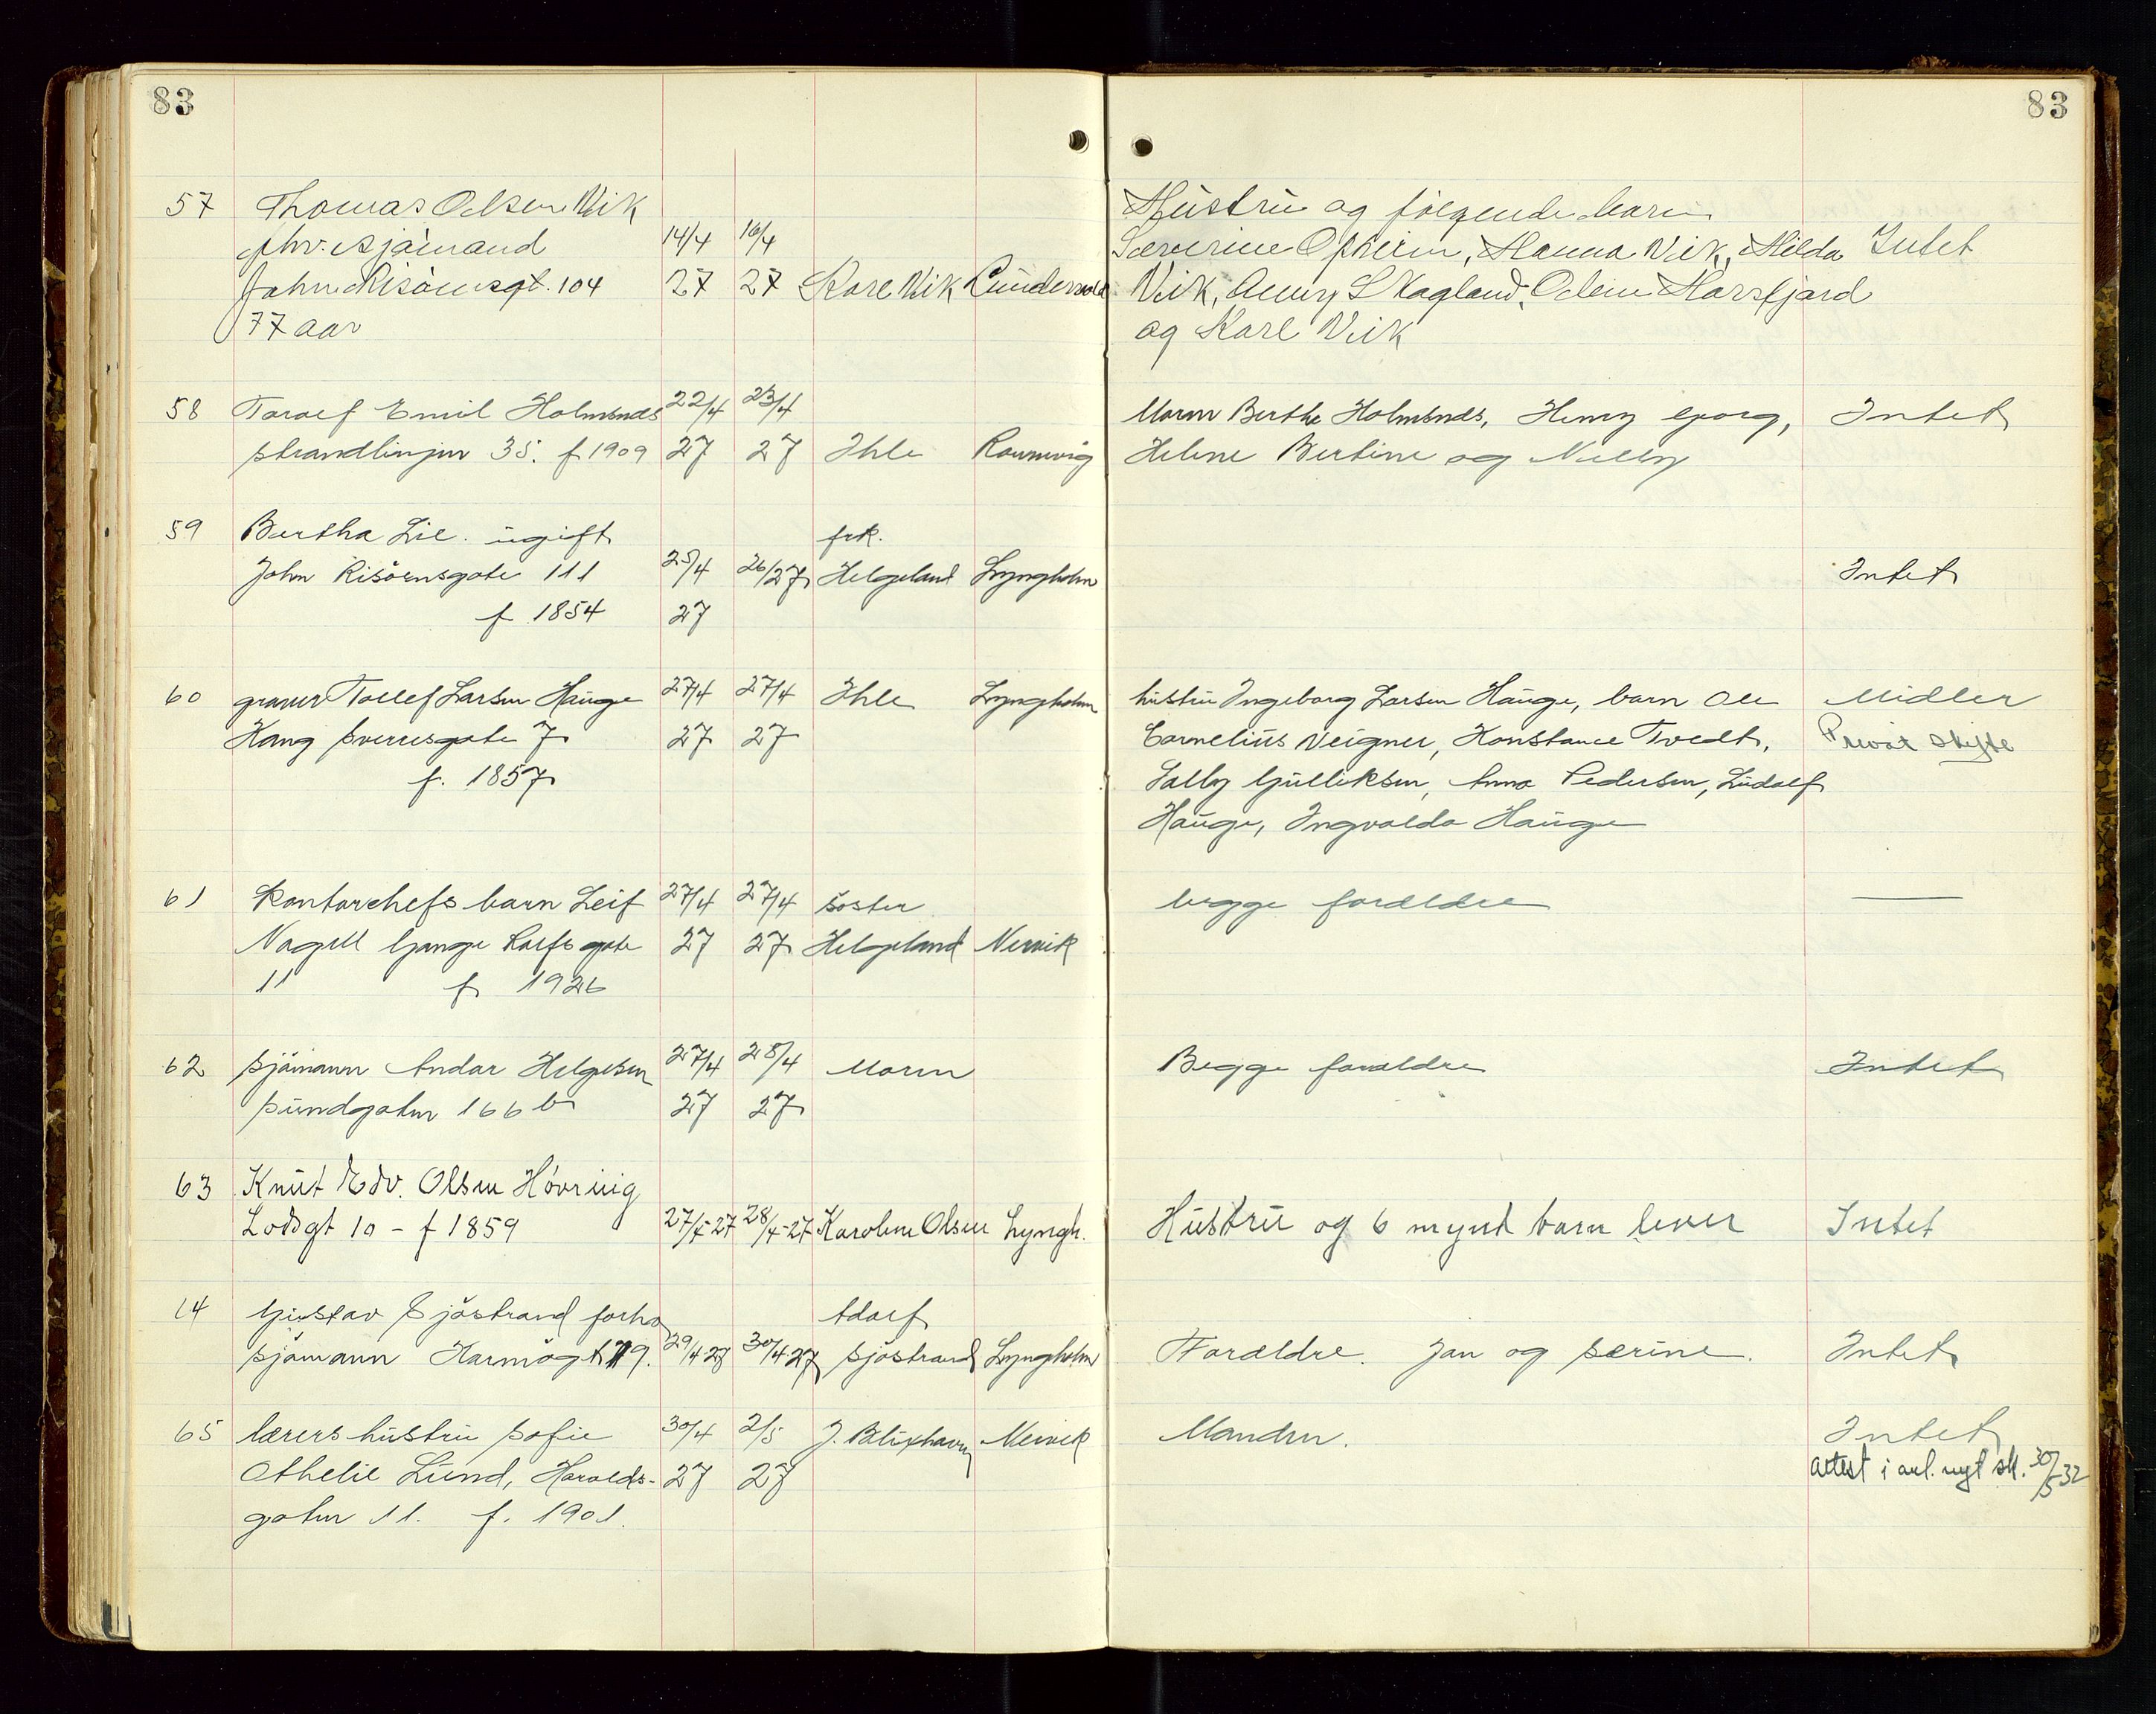 83
83
57 Thomas Olsen Vik
fhv. sjømand 14/4 16/4
John Risøensgt. 104 27 27 Kare Vik
77 aar
Hustru og følgende barn
Severine Opheim, Hanna Vik, Hilda Intet
Vik, Skagland, Harsfjord
og Karl Vik
58 Toralf Emil Holmsnes 22/4 23/4
strandlinjen 35. f 1909 27 27 Ihle Rønnevig
Moren Berthe Holmsnes, Henry Georg, Intet
Helene Bertine og Nelly
59 Bertha Lie. ugift frk.
John Risøensgate 111 25/4 26/27 Helgeland Lyngholm Intet
f 1854 27
60 graver Tollef Larsen Hauge 27/4 27/4 Ihle Lyngholm
Kong sverresgate 7 27 27
f. 1857
hustru Ingeborg Larsen Hauge, barn Ole Midler
Cornelius Veigner, Konstance Tvedt, Privat skifte
Sally Gulliksen, Anna Pedersen, Ludolf
Hauge, Ingvalda Hauge
61 Kontorchefs barn Leif 27/4 27/4 søster begge foreldre —
Nagell Gange Rolfs gate 27 27 Helgeland Nervik
11 f 1926
62 sjømann Andor Helgesen 27/4 28/4 Moren Begge foreldre Intet
sundgaten 166 b 27 27
63 Knut Edv. Olsen Høvring
Lodsgt 10 - f 1859 27/4-27 28/4-27 Karoline Olsen Lyngh. Hustru og 6 mynd barn lever Intet
64 Gustav Sjöstrand forhv
sjømann Karmøgt 79. 29/4-27 30/4-27 sjöstrand Lyngholm Foreldre. Jan og serine. Intet
65 lærers hustru sofie 30/4 2/5 J. Blixhavn Nervik Manden. Intet
Athelie Lund, Haralds- 27 27 attest i anl. nyt sk. 30/5 32
gaten 11. f. 1901.